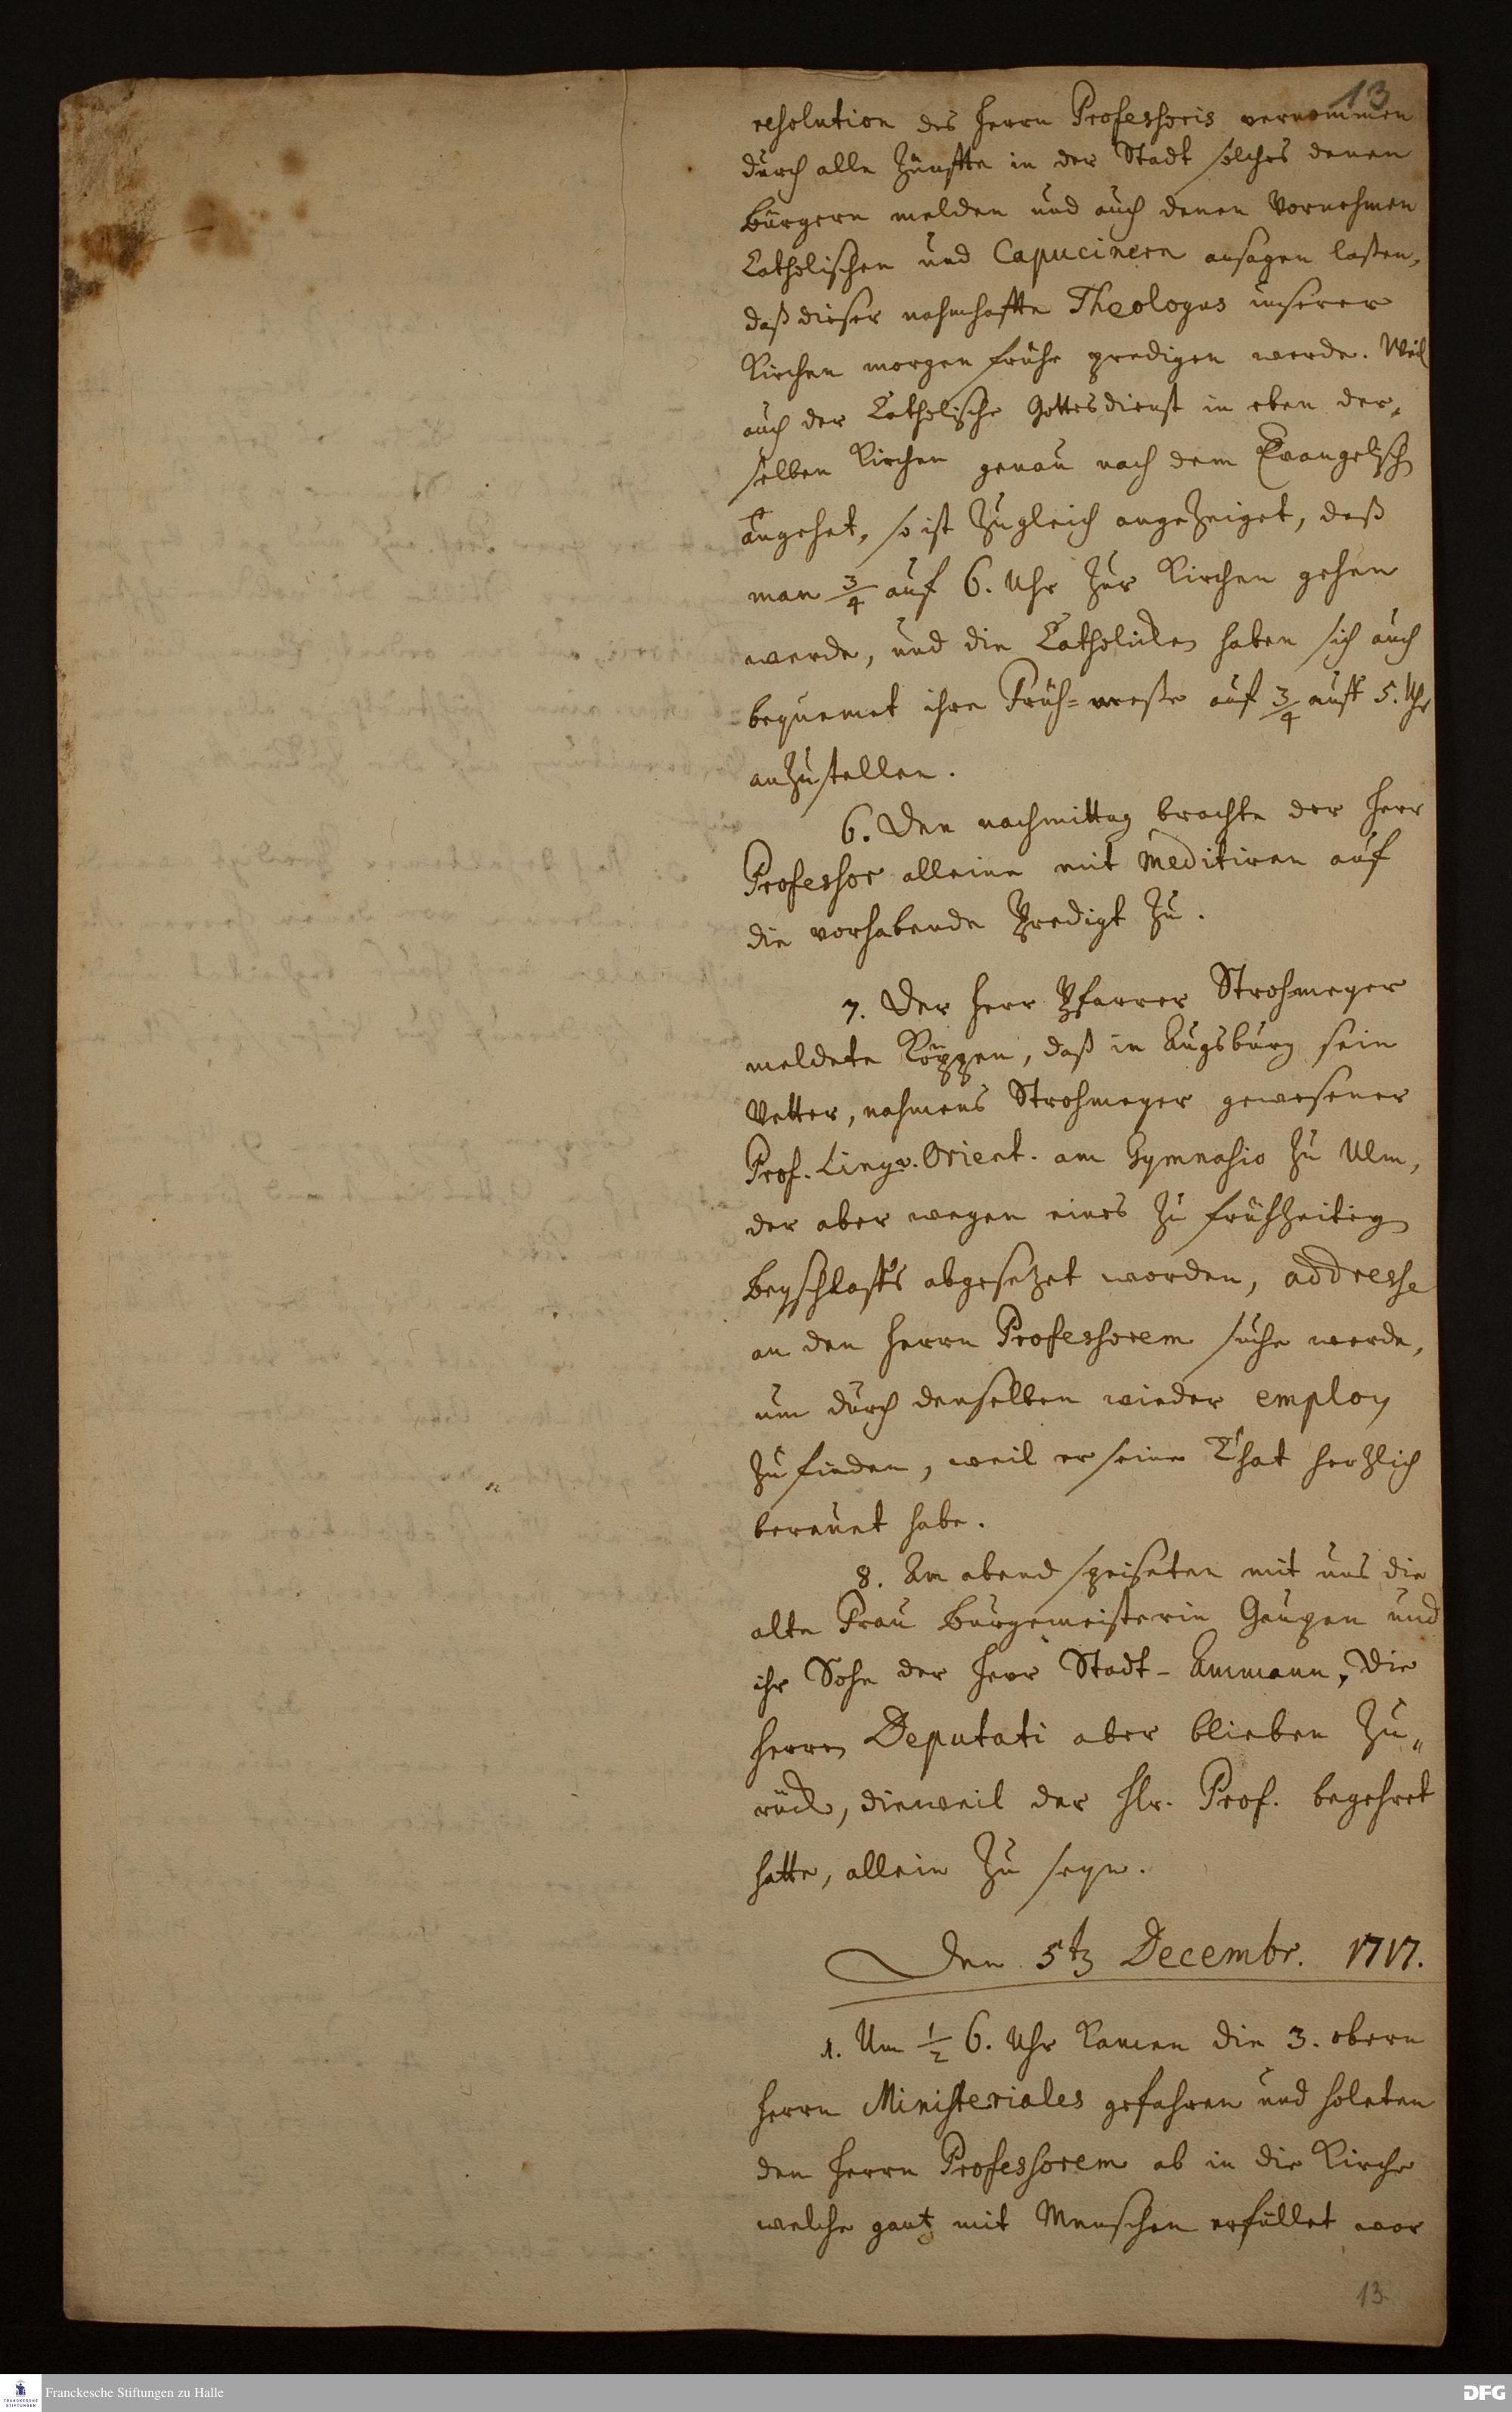 13
resolution des Herrn Professoris vernommen
durch alle Zünffte in der Stadt solches denen
Bürgern melden und auch denen Vornehmen
Catholischen und Capucinern ansagen laßen,
daß dieser nahmhaffte Theologus unserer
Kirchen morgen frühe predigen werde. Weil
auch der Catholische Gottesdienst in eben der„
selben Kirchen genau nach dem Evangelisch
angehet, so ist zugleich angezeiget, daß
man 3/4 auf 6. Uhr zur Kirchen gehen
werde, und die Catholicken haben sich auch
bequemet ihre Früh=messe auf 3/4 auff 5. Uhr
anzustellen.
6. Den nachmittag brachte der Herr
Professor alleine mit meditiren auf
die vorhabende Predigt zu.
7. Der Herr Pfarrer Strohmeyer
meldete Köppen, daß in Augsburg sein
Vetter, nahmens Strohmeyer gewesener
Prof. Lingv. Orient. am Gymnasio zu Ulm,
der aber wegen eines zu frühzeitig
Beyschlaffs abgesetzet worden, addresse
an den Herrn Professorem suche werde,
um durch denselben wieder employ
zu finden, weil er seine That hertzlich
bereuet habe.
8. Am abend speiseten mit uns die
alte Frau Burgemeisterin Gaupen und
ihr Sohn der Herr Stadt-Ammann, Die
Herren Deputati aber blieben zu„
rück, dieweil der Hr. Prof. begehret
hatte, allein zu seyn.
Den 5t Decembr. 1717.
1. Um 1/2 6. Uhr kamen die 3. obern
Herrn Ministeriales gefahren und holeten
den Herrn Professorem ab in die Kirche
welche gantz mit Menschen erfüllet war
13.
Franckesche Stiftungen zu Halle
DFG
FRANCKESCHE
STIFTUNGEN